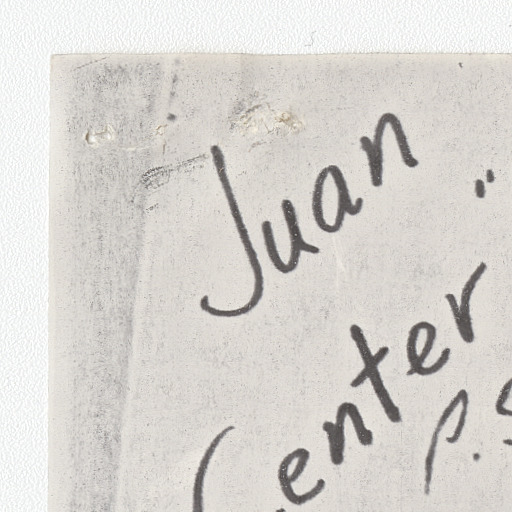 Juan "
Center
P.S